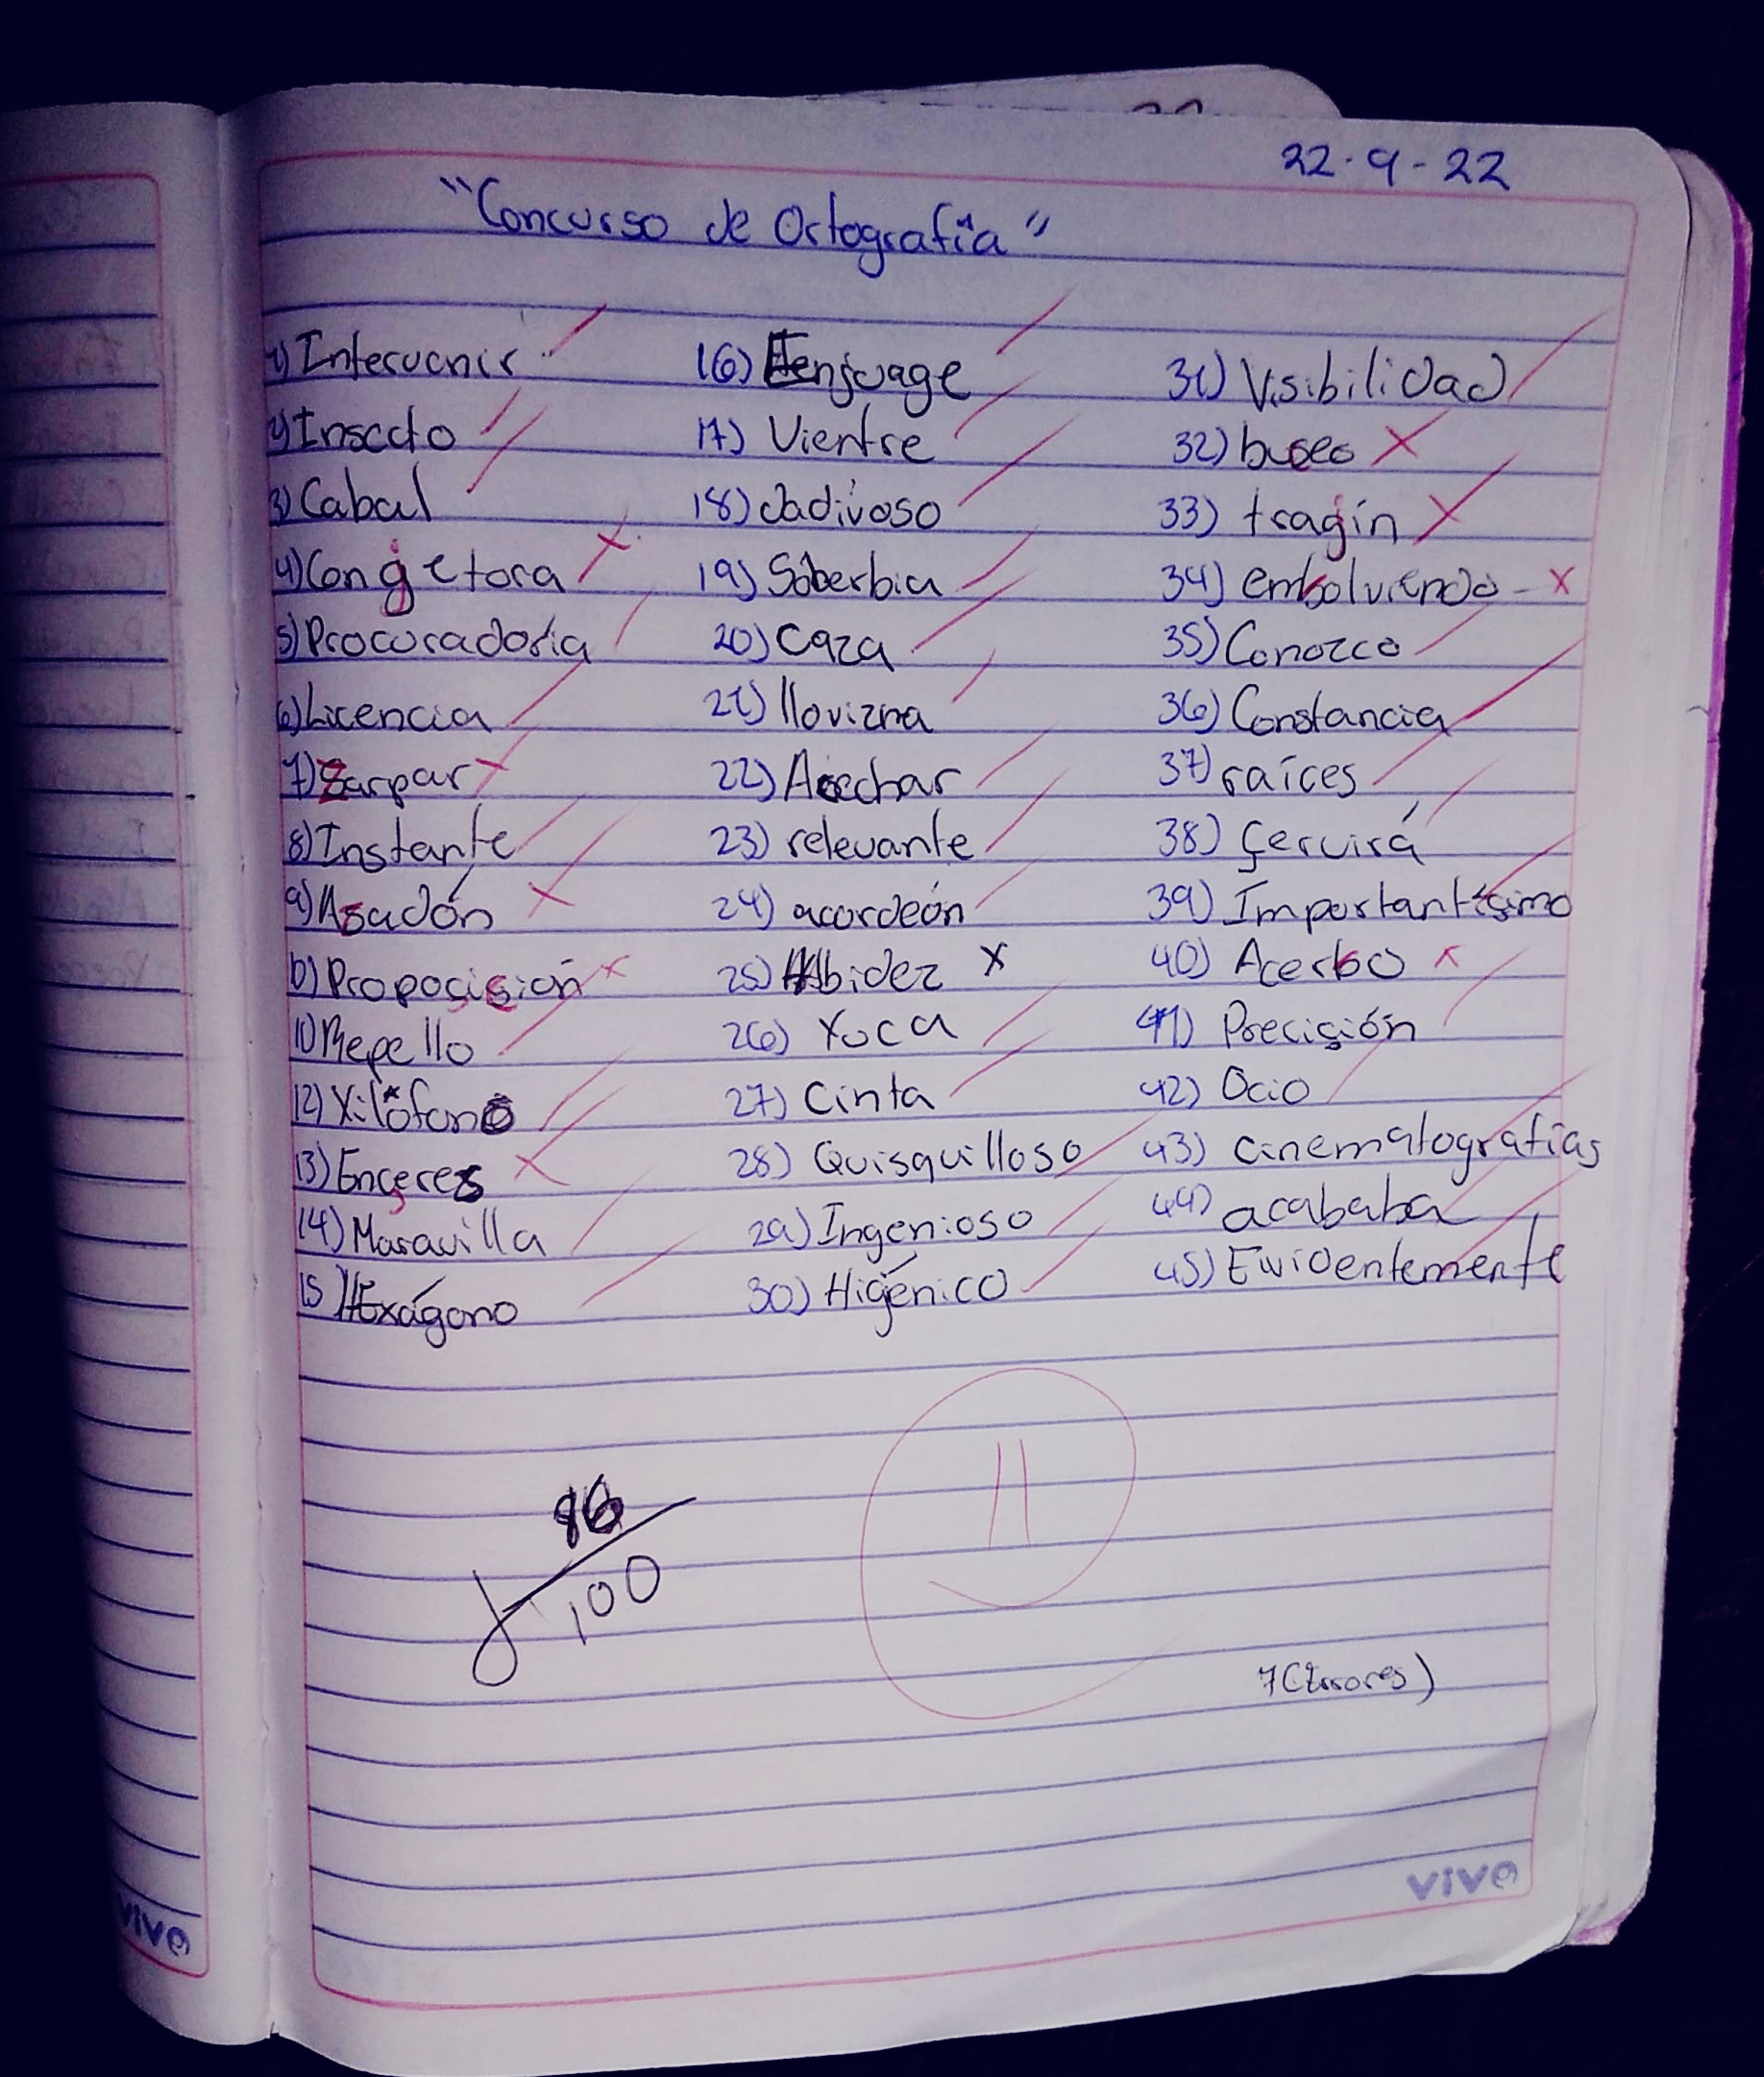 22-9-22
"Concurso de Ortografía"
1) Intervenir
2) Insecto
3) Cabal
4) Congetora
5) Procuradoría
6) Licencia
7) Zarpar
8) Instante
9) Asadón
10) Proposición
11) Repello
12) Xilófono
13) Enceres
14) Maravilla
15) Hexágono
16) Enjuage
17) Vientre
18) dadivoso
19) Soberbia
20) Caza
21) llovizna
22) Acechar
23) relevante
24) acordeón
25) Abidez
26) Yuca
27) Cinta
28) Quisquilloso
29) Ingenioso
30) Higénico
31) Visibilidad
32) buseo
33) tragín
34) embolviendo
35) Conozco
36) Constancia
37) raíces
38) Servirá
39) Importantísimo
40) Acerbo
41) Precisión
42) Ocio
43) cinematografías
44) acababa
45) Evidentemente
86
100
7 (Errores)
vive
vive